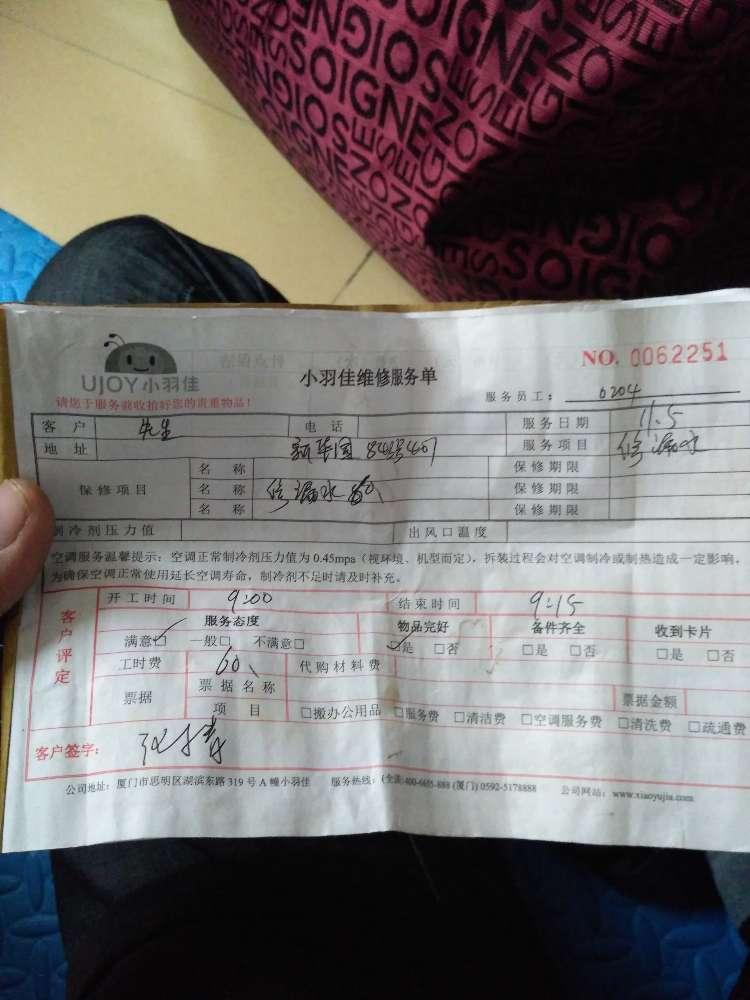 SOIGNE
UJOY小羽佳
小羽佳维修服务单
NO. 0062251
请您于服务前收拾好您的贵重物品！
服务员工： 0204
客户 先生 电话 服务日期 11.5
地址 新华园84号407 服务项目 修漏水
保修项目 名称 保修期限
名称 修漏水 60 保修期限
名称 保修期限
制冷剂压力值 出风口温度
空调服务温馨提示：空调正常制冷剂压力值为 0.45mpa（视环境、机型而定），拆装过程会对空调制冷或制热造成一定影响，
为确保空调正常使用延长空调寿命，制冷剂不足时请及时补充。
客户评定
开工时间 9:00 结束时间 9:15
服务态度 物品完好 备件齐全 收到卡片
满意□ 一般□ 不满意□ □是 □否 □是 □否 □是 □否
工时费 60 代购材料费
票据 票据名称 票据金额
项目 □搬办公用品 □服务费 □清洁费 □空调服务费 □清洗费 □疏通费
客户签字：
公司地址：厦门市思明区湖滨东路 319 号 A 幢小羽佳 服务热线：(全国)400-6605-888 (厦门) 0592-5178888 公司网站：www.xiaoyujia.com